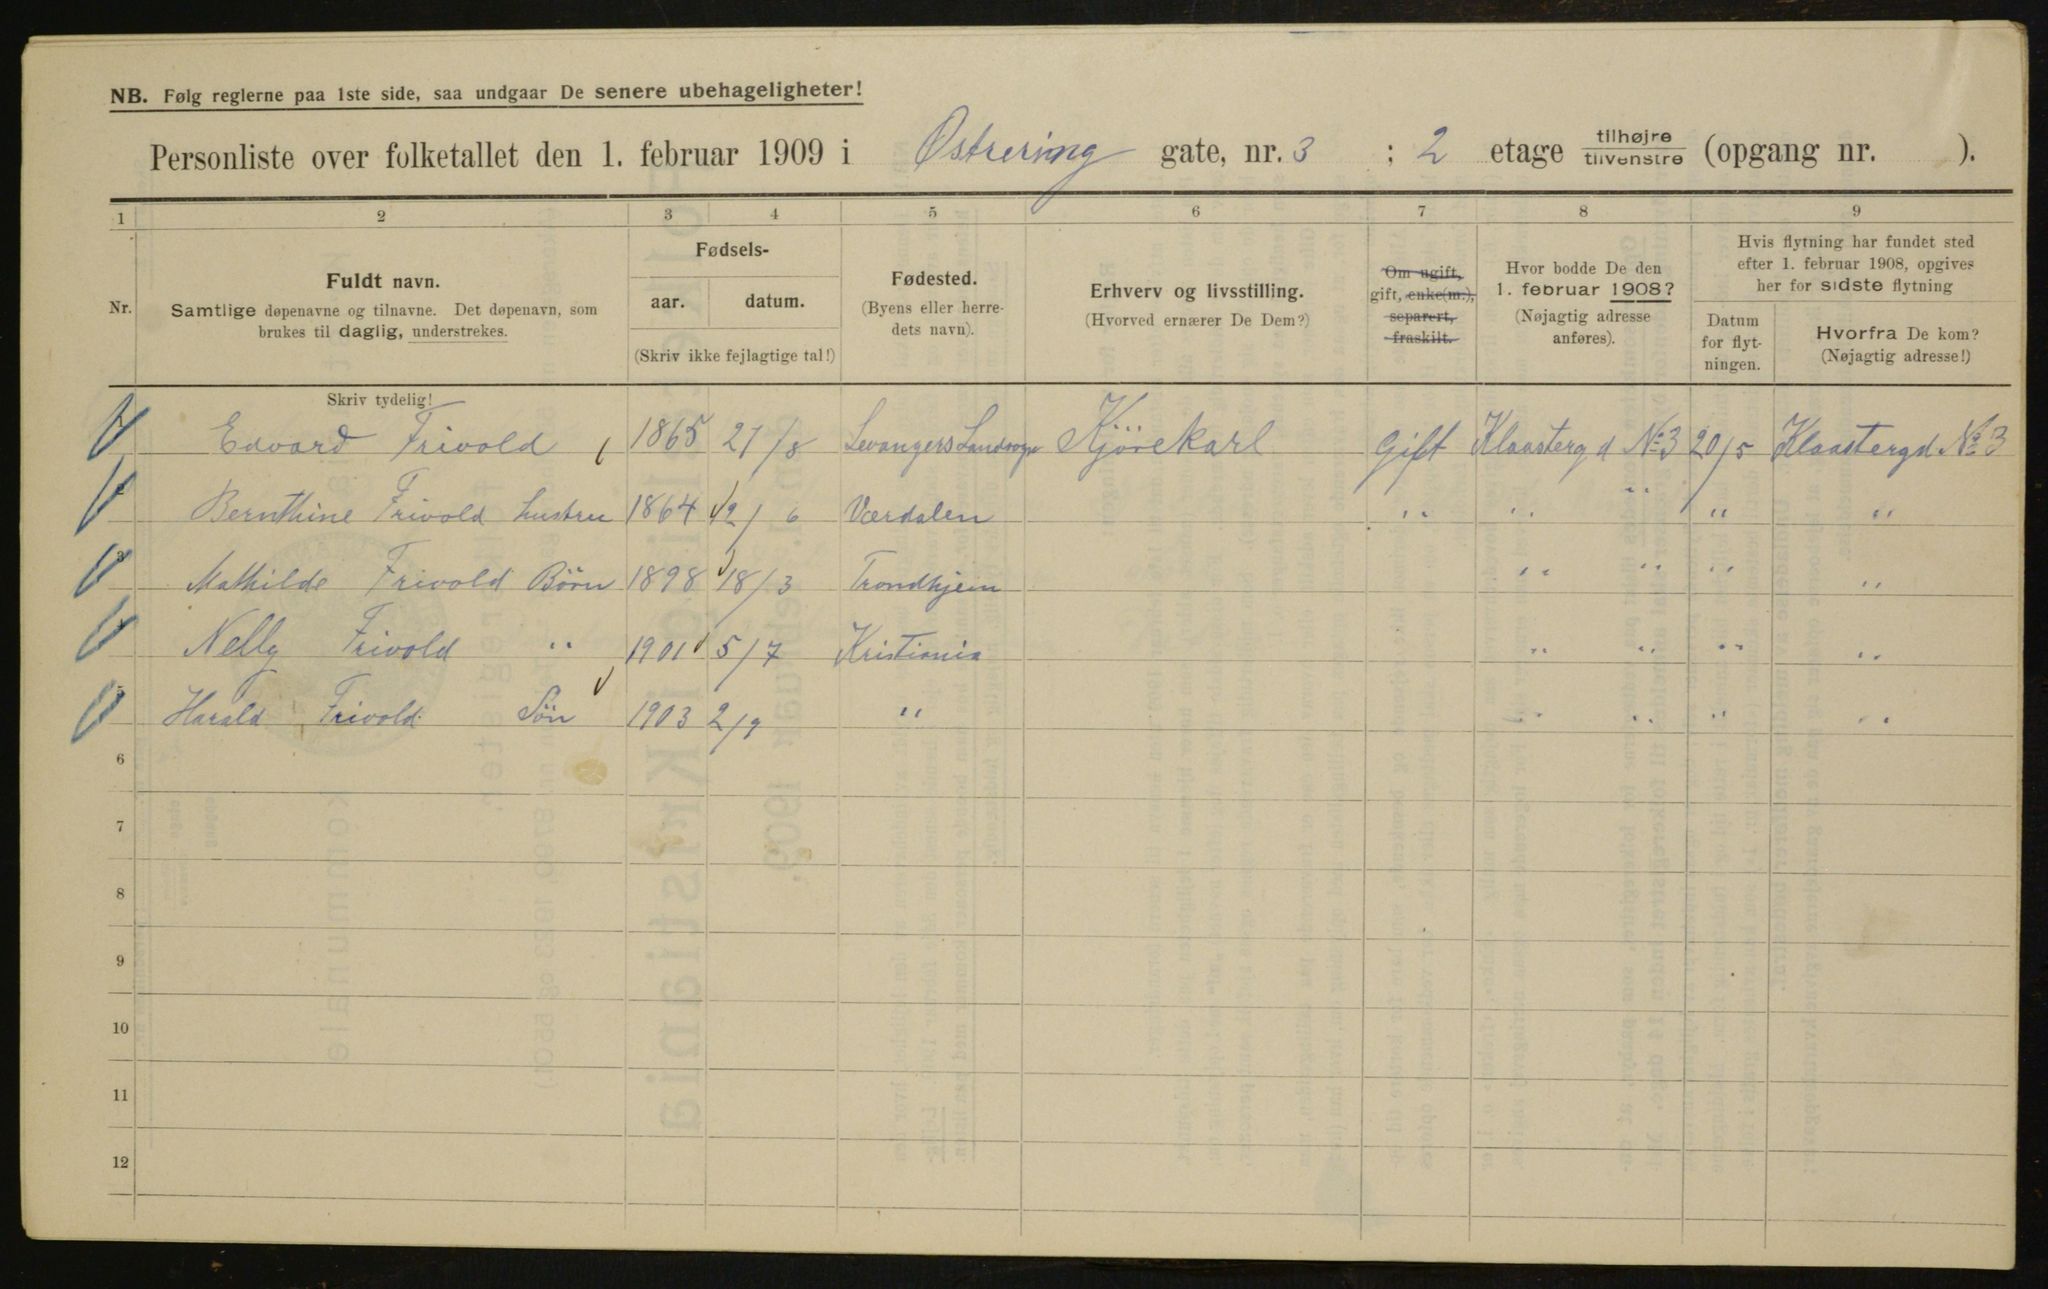 NB. Følg reglerne paa 1ste side, saa undgaar De senere ubehageligheter!
Personliste over folketallet den 1. februar 1909 i Østrering gate, nr. 3 ; 2 etage tilhøjre tilvenstre (opgang nr. ).
1 2 3 4 5 6 7 8 9
Nr.
Fuldt navn.
Samtlige døpenavne og tilnavne. Det døpenavn, som
brukes til daglig, understrekes.
Fødsels-
aar. datum.
(Skriv ikke fejlagtige tal!)
Fødested.
(Byens eller herre-
dets navn).
Erhverv og livsstilling.
(Hvorved ernærer De Dem?)
Om ugift,
gift, enke(m.),
separert,
fraskilt.
Hvor bodde De den
1. februar 1908?
(Nøjagtig adresse
anføres).
Hvis flytning har fundet sted
efter 1. februar 1908, opgives
her for sidste flytning
Datum
for flyt-
ningen.
Hvorfra De kom?
(Nøjagtig adresse!)
Skriv tydelig!
Edvard Frivold 1865 21/8 Levangers Landsogn Kjørekarl Gift Klaastergd No 3 20/5 Klaastergd No 3
2 Bernthine Frivold hustru 1864 12/6 Værdalen " " " " "
3 Mathilde Frivold Børn 1898 18/3 Trondhjem " " " "
Nelly Frivold " 1901 5/7 Kristiania " " " "
5 Harald Frivold Søn 1903 2/9 " " " " "
6
7
8
9
10
11
12